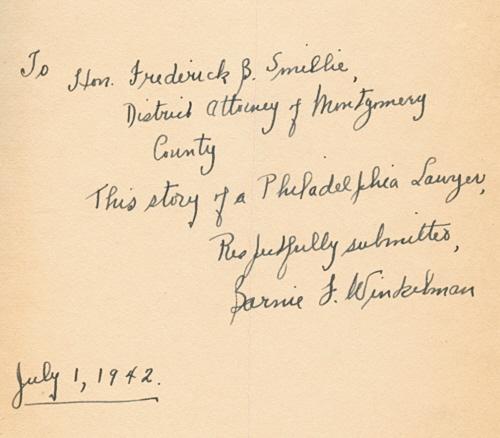 To Hon. Frederick B. Smillie,
District Attorney of Montgomery
County
This story of a Philadelphia Lawyer,
Respectfully submitted,
Barnie F. Winkelman
July 1, 1942.